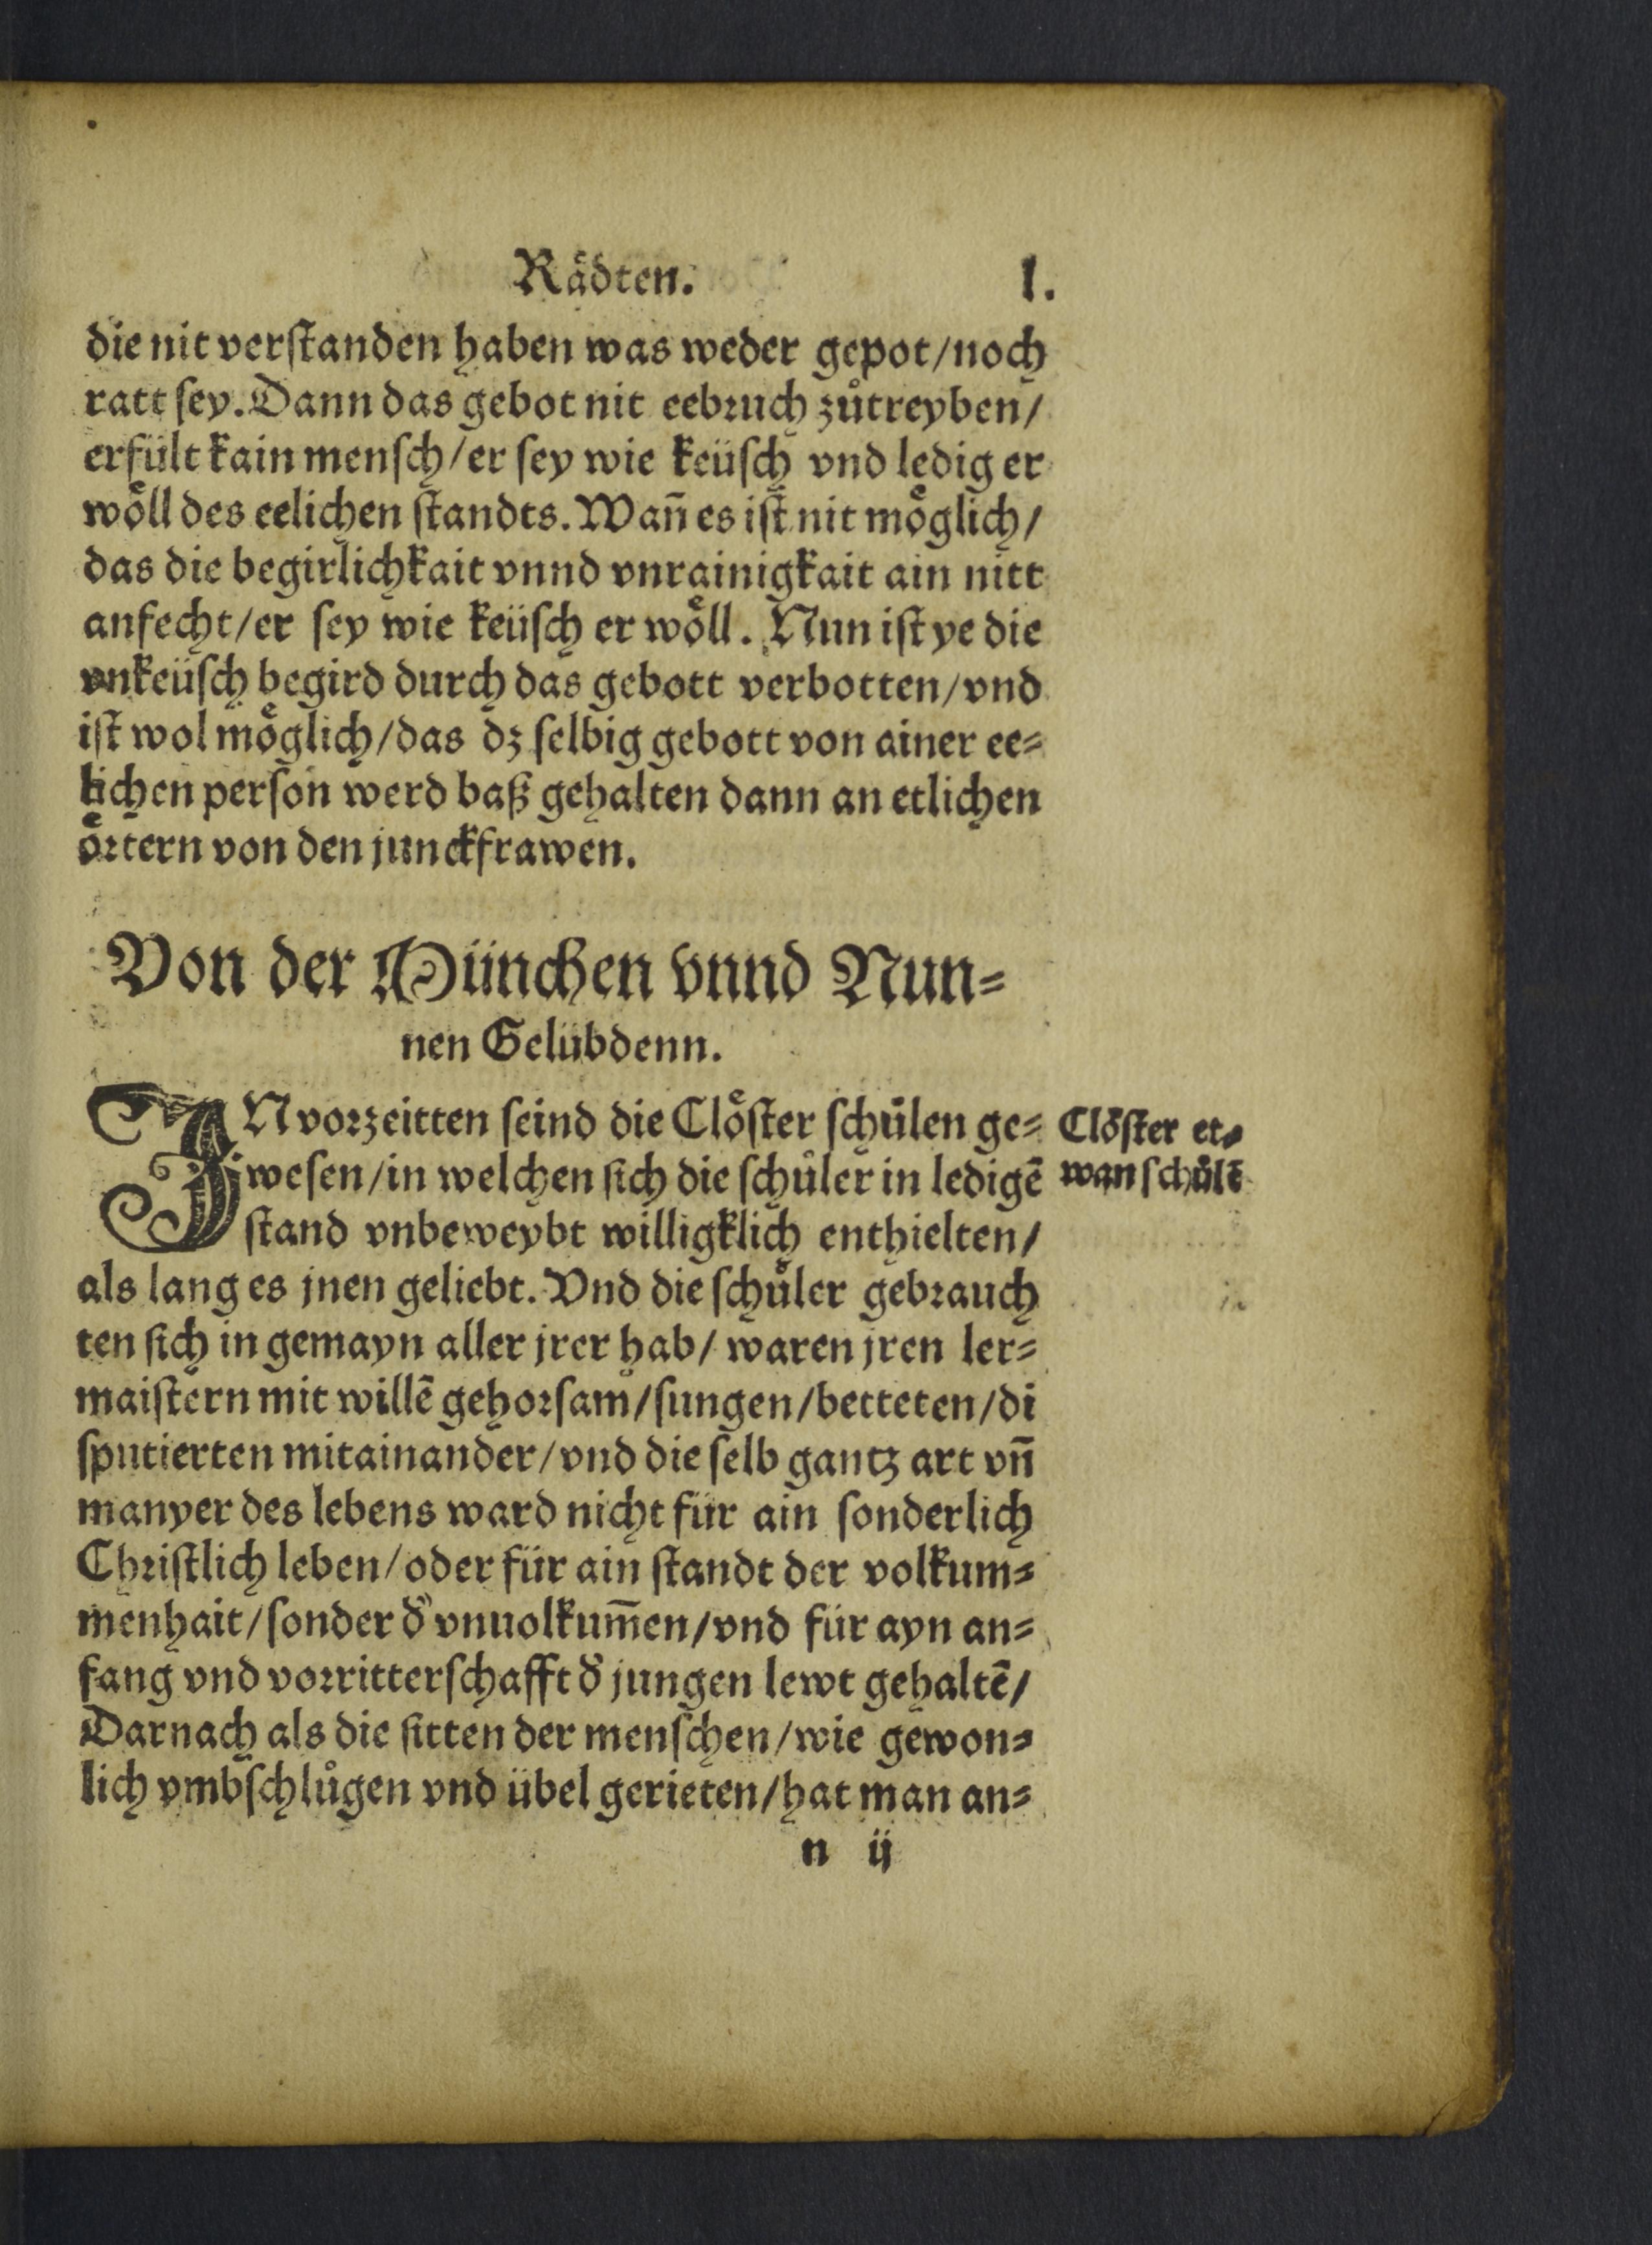 Raͤdten. L.
die nit verſtanden haben was weder gepot/noch
ratt ſey. Dann das gebot nit eebꝛuch zuͦtreyben/
erfült kain menſch/er ſey wie keüſch vnd ledig er
woͤll des eelichen ſtandts. Wañ es iſt nit moͤglich/
das die begirlichkait vnnd vnrainigkait ain nitt
anfecht/er ſey wie keüſch er woͤll. Nun iſt ye die
vnkeüſch begird durch das gebott verbotten/vnd
iſt wol moͤglich/das dz ſelbig gebott von ainer ee⸗
lichen perſon werd baß gehalten dann an etlichen
oͤꝛtern von den junckfrawen.
Von der München vnnd Nun⸗
nen Gelübdenn.
IN voꝛzeitten ſeind die Cloͤſter ſchuͦlen ge⸗
weſen/in welchen ſich die ſchuͦler in ledigē
ſtand vnbeweybt willigklich enthielten/
als lang es jnen geliebt. Vnd die ſchuͦler gebꝛauch
ten ſich in gemayn aller jrer hab/ waren jren ler⸗
maiſtern mit willē gehoꝛſam/ſungen/betteten/di
ſputierten mitainander/vnd die ſelb gantz art vñ
manyer des lebens ward nicht für ain ſonderlich
Chꝛiſtlich leben/oder für ain ſtandt der volkum⸗
menhait/ſonder d̕ vnuolkum̄en/vnd für ayn an⸗
fang vnd voꝛritterſchafft d̕ jungen lewt gehaltē/
Darnach als die ſitten der menſchen/wie gewon⸗
lich vmbſchluͦgen vnd übel gerieten/hat man an⸗
n ij
Cloͤſter et⸗
wan ſchuͦlē